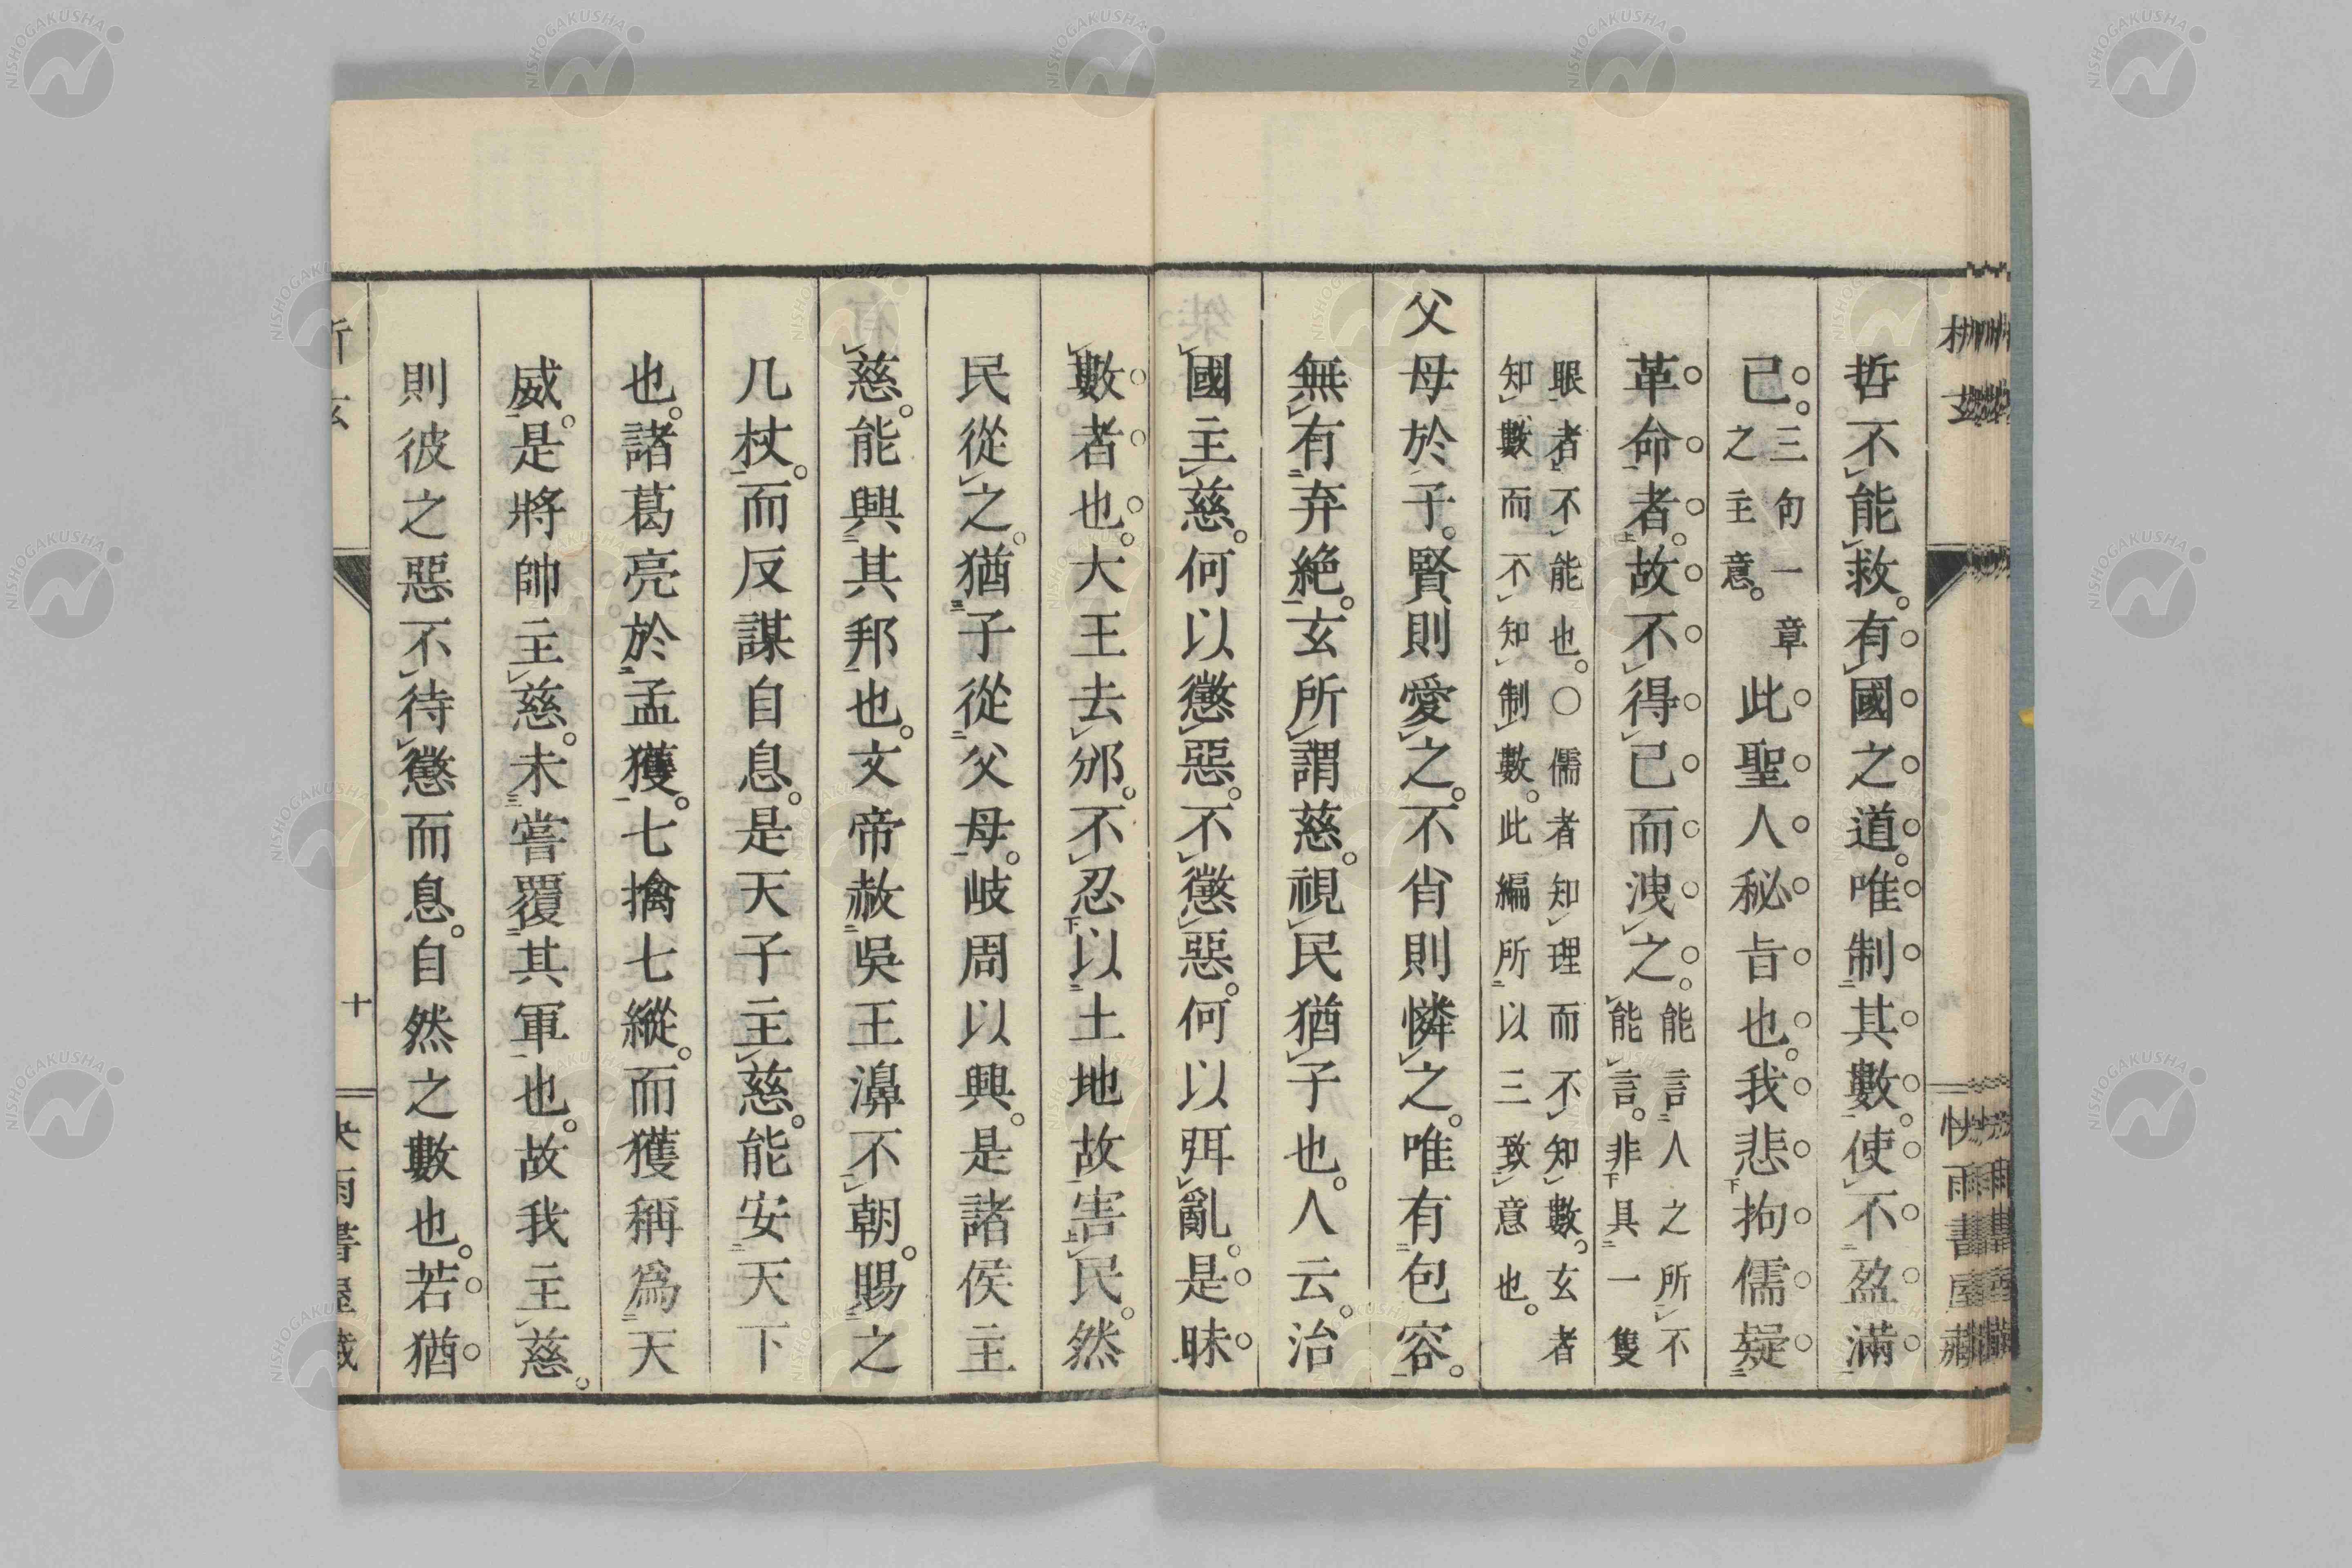 哲不能救。有國之道。唯制其數。使不盈滿
已。三句一章之主意。此聖人秘旨也。我悲拘儒疑
革命者。故不得已而洩之。能言人之所不能言。非具一隻
眼者不能也。〇儒者知理而不知數。玄者知數而不知制數。此編所以三致意也。
父母於子。賢則愛之。不肖則憐之。唯有包容。
無有弃絶。玄所謂慈。視民猶子也。人云。治
國主慈。何以懲惡。不懲惡。何以弭亂。是昧
數者也。大王去邠。不忍以土地故害民。然
民從之。猶子從父母。岐周以興。是諸侯主
慈。能興其邦也。文帝赦吳王濞不朝。賜之
几杖。而反謀自息。是天子主慈。能安天下
也。諸葛亮於孟獲。七擒七縱。而獲稱爲天
威。是將帥主慈。未嘗覆其軍也。故我主慈。
則彼之惡不待懲而息。自然之數也。若猶
十
快雨書屋藏
NISHOGAKUSHA